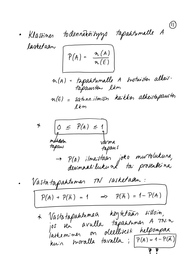 11
• Klassinen todennäköisyys tapahtumalle A
lasketaan
P(A) = n(A) / n(E)
n(A) = tapahtumalle A suotuisien alkeis-
tapausten lkm
n(E) = satunnaisilmiön kaikkien alkeistapausten
lkm
* 0 ≤ P(A) ≤ 1
mahdoton varma
tapaus tapaus
→ P(A) ilmaistaan joko murtolukuna,
desimaalilukuna tai prosentteina
• Vastatapahtuman TN lasketaan:
P(A) + P(Ā) = 1 ⇒ P(Ā) = 1 − P(A)
* Vastatapahtumaa käytetään silloin,
jos sen avulla tapahtuman A TN:n
laskeminen on oleellisesti helpompaa
kuin muulla tavalla ; P(A) = 1 − P(Ā)